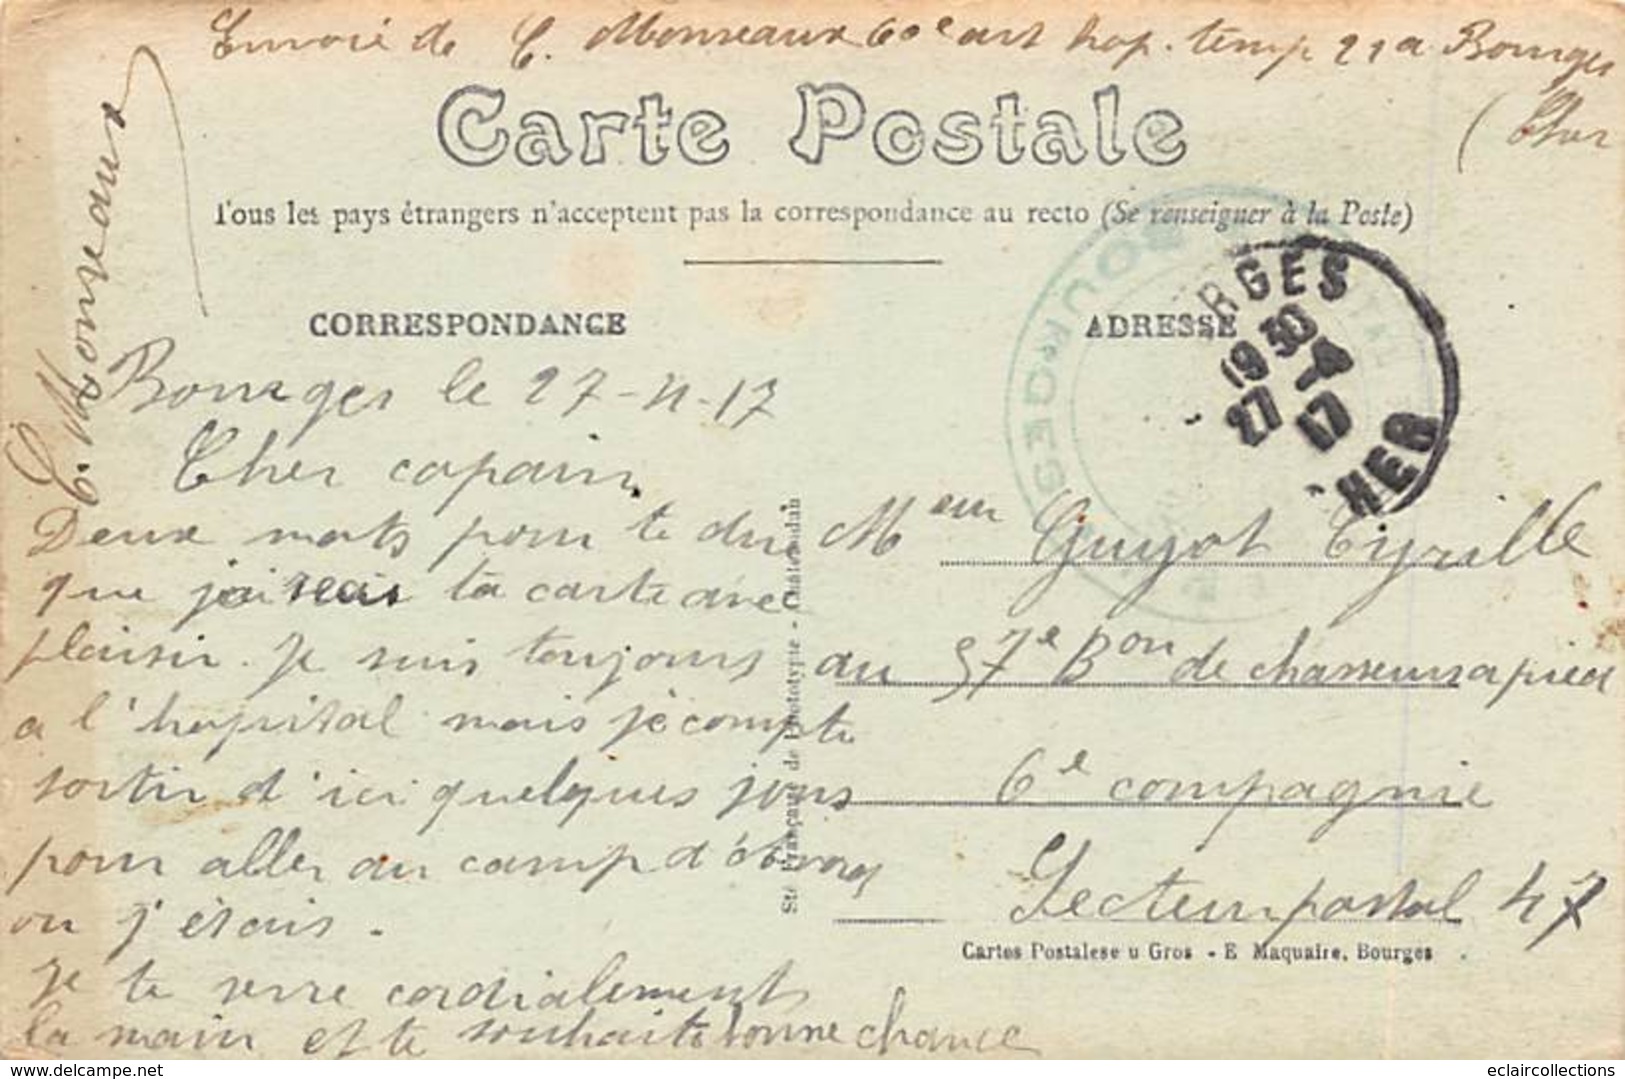 Envoie de C. Monseaux 60e art hop. temp 21 a Bourges
(Cher
Carte Postale
Tous les pays étrangers n'acceptent pas la correspondance au recto (Se renseigner à la Poste)
CORRESPONDANCE
ADRESSE
BOURGES
RGES
19 30
27 - 4
17
CHER
Bourges le 27-4-17
Cher copain,
Deux mots pour te dire
que jai reçis ta carte avec
plaisir. Je suis toujours
a l'hopital mais je compte
sortir d'ici quelques jours
pour aller au camp d'
ou j'étais.
Je te serre cordialement
la main et te souhaite bonne chance
C. Monseaux
Meur Guyot Cyrille
au 57e Bon de chasseurs a pied
6e compagnie
Secteur postal 47
Sté Française de Phototypie - Châteaudun
Cartes Postalese u Gros - E Maquaire, Bourges
eclaircollections
www.delcampe.net